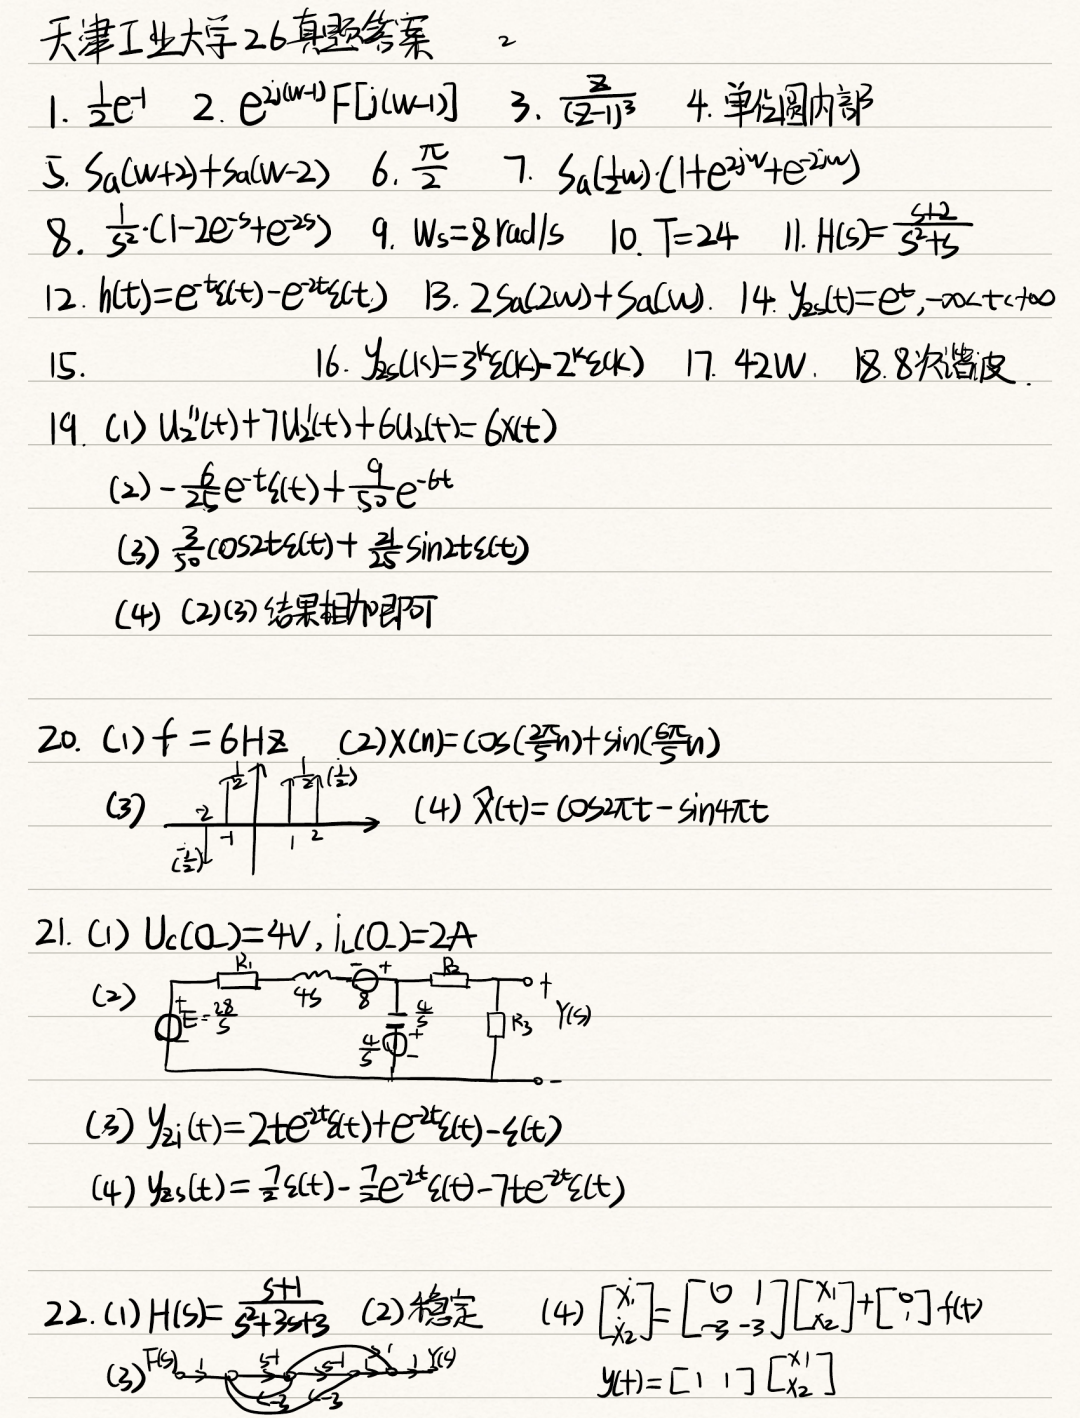 天津工业大学26真题答案 2
1. 1/2 e^-1 2. e^2j(w-1) F[j(w-1)] 3. z/(z-1)^3 4. 单位圆内部
5. Sa(w+2)+Sa(w-2) 6. π/2 7. Sa(1/2 w)·(1+e^2jw+e^-2jw)
8. 1/s^2·(1-2e^-s+e^-2s) 9. Ws=8rad/s 10. T=24 11. H(s)=(s+2)/(s^2+s)
12. h(t)=e^-tε(t)-e^-2tε(t) 13. 2Sa(2w)+Sa(w). 14. yzs(t)=e^t, -∞<t<+∞
15. 16. yzs(k)=3^kε(k)-2^kε(k) 17. 42W. 18. 8次谐波.
19. (1) U2''(t)+7U2'(t)+6U2(t)=6x(t)
(2) -6/25 e^-tε(t)+9/50 e^-6t
(3) 3/50 cos2tε(t)+21/25 sin2tε(t)
(4) (2)(3)结果相加即可
20. (1) f=6Hz (2) x(n)=cos(2π/5 n)+sin(6π/5 n)
(3) -2 1/2 1/2 (1/2) (-1/2) -1 1 2 (4) x̂(t)=cos2πt-sin4πt
21. (1) Uc(0_)=4V, iL(0_)=2A
(2) R1 4s - + 8 R2 + E=28/s 4/s 4/s + - R3 + Y(s) -
(3) yzi(t)=2te^-2tε(t)+e^-2tε(t)-ε(t)
(4) yzs(t)=7/2 ε(t)-7/2 e^-2tε(t)-7te^-2tε(t)
22. (1) H(s)=(s+1)/(s^2+3s+3) (2) 稳定 (4) [ẋ1 ẋ2]=[0 1 -3 -3][x1 x2]+[0 1]f(t)
(3) F(s) 1 s^-1 s^-1 1 1 Y(s) -3 -3 y(t)=[1 1][x1 x2]